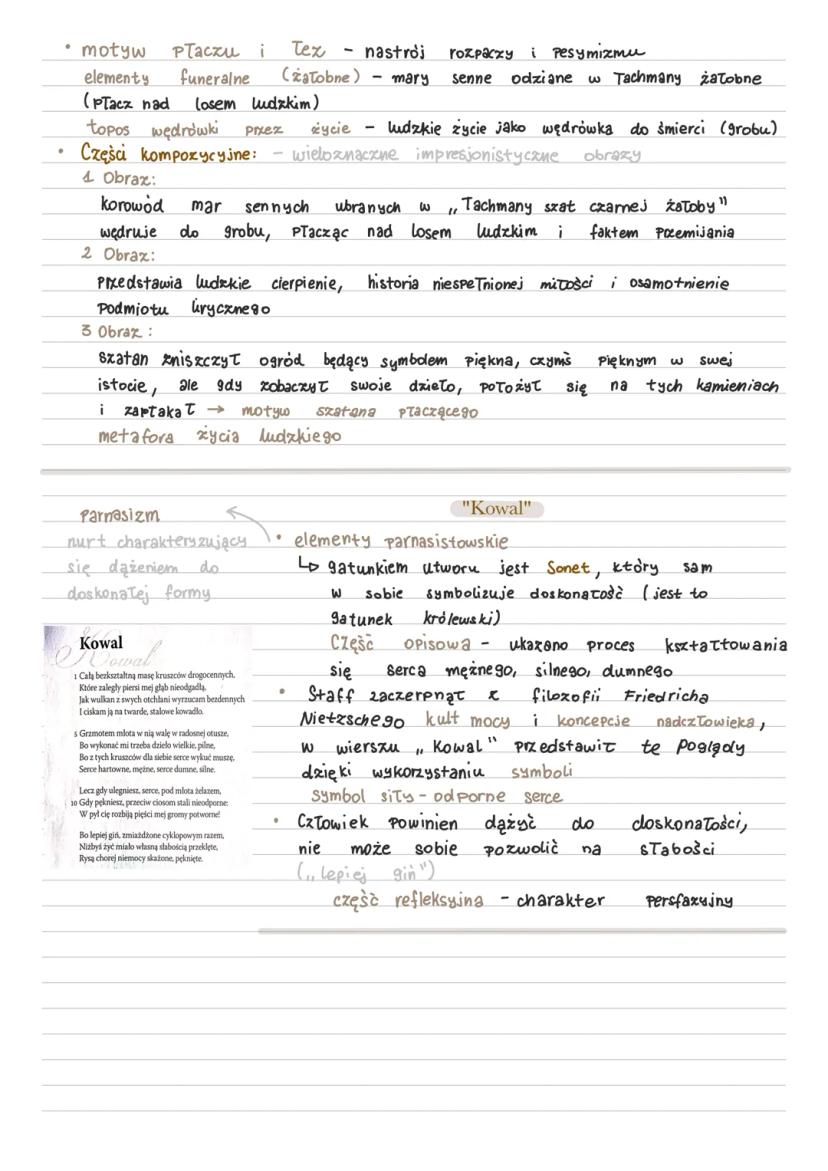 • motyw płaczu i łez - nastrój rozpaczy i pesymizmu
elementy funeralne (żałobne) - mary senne odziane w łachmany żałobne
(płacz nad losem ludzkim)
topos wędrówki przez życie - ludzkie życie jako wędrówka do śmierci (grobu)
• Części kompozycyjne: - wieloznaczne impresjonistyczne obrazy
1 Obraz:
korowód mar sennych ubranych w „łachmany szat czarnej żałoby"
wędruje do grobu, płacząc nad losem ludzkim i faktem przemijania
2 Obraz:
przedstawia ludzkie cierpienie, historia niespełnionej miłości i osamotnienie
podmiotu lirycznego
3 Obraz:
szatan zniszczył ogród będący symbolem piękna, czymś pięknym w swej
istocie, ale gdy zobaczył swoje dzieło, położył się na tych kamieniach
i zapłakał → motyw szatana płaczącego
metafora życia ludzkiego
"Kowal"
parnasizm
nurt charakteryzujący
się dążeniem do
doskonałej formy
• elementy parnasistowskie
↳ gatunkiem utworu jest Sonet, który sam
w sobie symbolizuje doskonałość (jest to
gatunek królewski)
Część opisowa - ukazano proces kształtowania
się serca mężnego, silnego, dumnego
• Staff zaczerpnął z filozofii Friedricha
Nietzschego kult mocy i koncepcje nadczłowieka,
w wierszu „Kowal" przedstawił te poglądy
dzięki wykorzystaniu symboli
symbol siły - odporne serce
• Człowiek powinien dążyć do doskonałości,
nie może sobie pozwolić na słabości
(„lepiej giń")
część refleksyjna - charakter persfazyjny
Kowal
Kowal
1 Całą bezkształtną masę kruszców drogocennych,
Które zaległy piersi mej głąb nieodgadłą,
Jak wulkan z swych otchłani wyrzucam bezdennych
I ciskam ją na twarde, stalowe kowadło.
5 Grzmotem młota w nią walę w radosnej otusze,
Bo wykonać mi trzeba dzieło wielkie, pilne,
Bo z tych kruszców dla siebie serce wykuć muszę,
Serce hartowne, mężne, serce dumne, silne.
Lecz gdy ulegniesz, serce, pod młota żelazem,
10 Gdy pękniesz, przeciw ciosom stali nieodporne:
W pył cię rozbiją pięści mej gromy potworne!
Bo lepiej giń, zmiażdżone cyklopowym razem,
Niżbyś żyć miało własną słabością przeklęte,
Rysą chorej niemocy skażone, pęknięte.